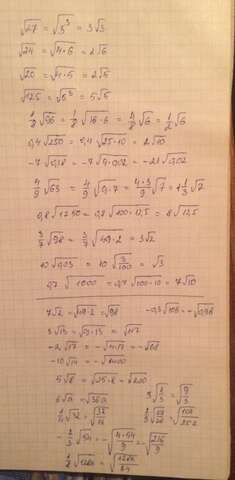 √27 = √3³ = 3√3
√24 = √4·6 = 2√6
√20 = √4·5 = 2√5
√125 = √5³ = 5√5
1/8 √96 = 1/8 √16·6 = 4/8 √6 = 1/2 √6
0,4√250 = 0,4√25·10 = 2√10
-7√0,18 = -7√9·0,02 = -21√0,02
4/9 √63 = 4/9 √9·7 = 4·3/9 √7 = 1 1/3 √7
0,8√1250 = 0,8√100·12,5 = 8√12,5
3/7 √98 = 3/7 √49·2 = 3√2
10√0,03 = 10√3/100 = √3
0,7√1000 = 0,7√100·10 = 7√10
7√2 = √49·2 = √98
3√13 = √9·13 = √117
-2√17 = -√4·17 = -√68
-10√14 = -√1400
5√8 = √25·8 = √200
6√a = √36a
1/4 √32 = √32/16
-2/3 √54 = -√4·54/9 = -√216/9